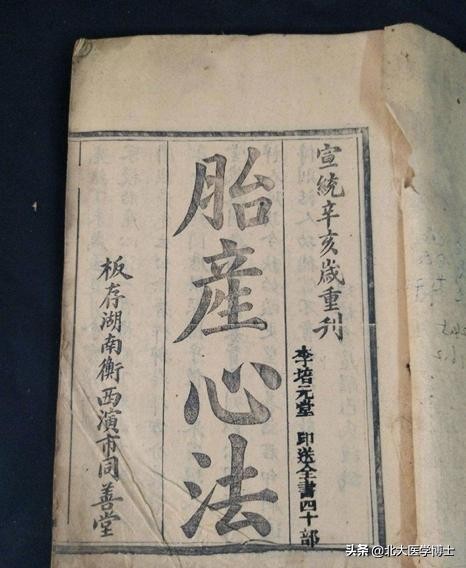 宣統辛亥歲重刊
李培元堂 印送全書四十部
胎產心法
板存湖南衡西演市同善堂
头条 @北大医学博士